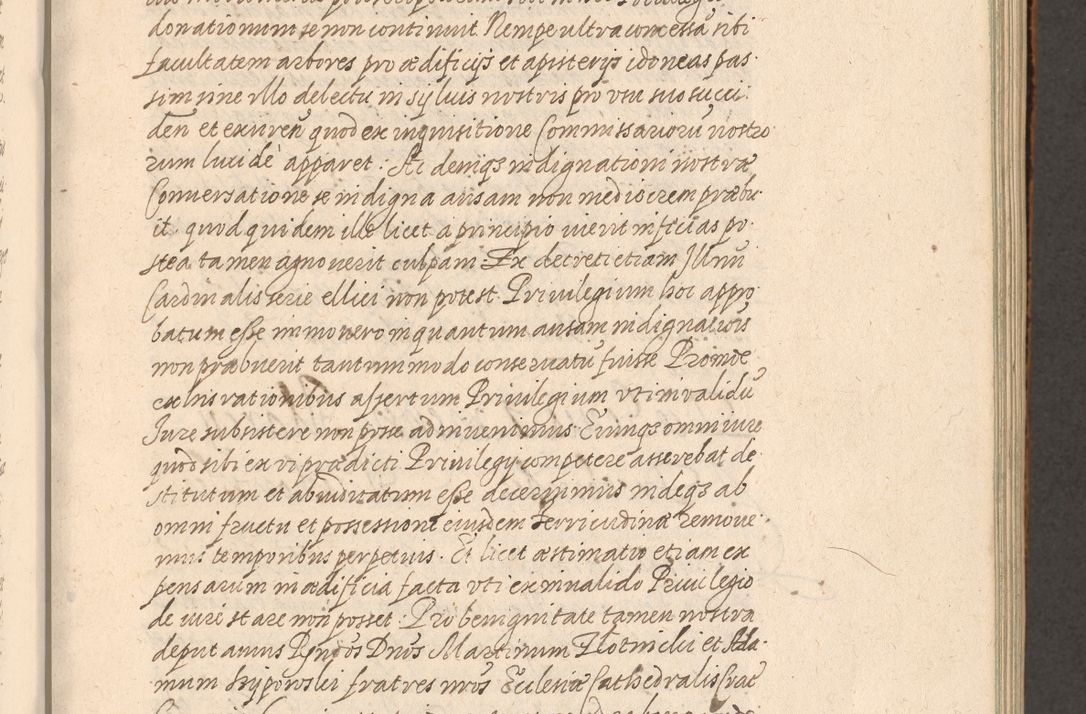 donationum se non continuit Nempe ultra concessã sibi
facultatem arbores pro ædificijs et apisterijs idoneas pas
sim sine vllo delectu in syluis nostris pro vsu suo succi
den et exuren quod ex inquisitione Commissariorũ nostro
rum lucide apparet. Ac deniqs indignationi nostræ
Conversatione se indigna ansam non mediocrem præbu
it. quod quidem ille licet a principio iuerit inficias po
stea tamen agnouerit culpam. Ex decreti etiam Illmi
Cardinalis serie ellici non potest Priuilegium hoc appro
batum esse immo vero in quantum ansam indignatiois
non præbuerit tantummodo conseruatũ fuisse Proinde
ex his rationibus assertum Priuilegium vti inualidũ
Jure subsistere non posse adinuenimus Eumqs omni iure
quod sibi ex vi prædicti Priuilegy competere asserebat de
stitutum et abiudicatum esse decernimus indeqs ab
omni fructu et possessione eiusdem Ferricudinæ remoue
mus temporibus perpetuis. Et licet æstimatio etiam ex
pensarum in ædificia facta vti ex inualido Priuilegio
de iure stare non posset. Pro benignitate tamen nostra
deputamus Dnos Martinum Plotnicki et Ada
mum Hryporski fratres nros Ecclesiæ Cathedralis Crac